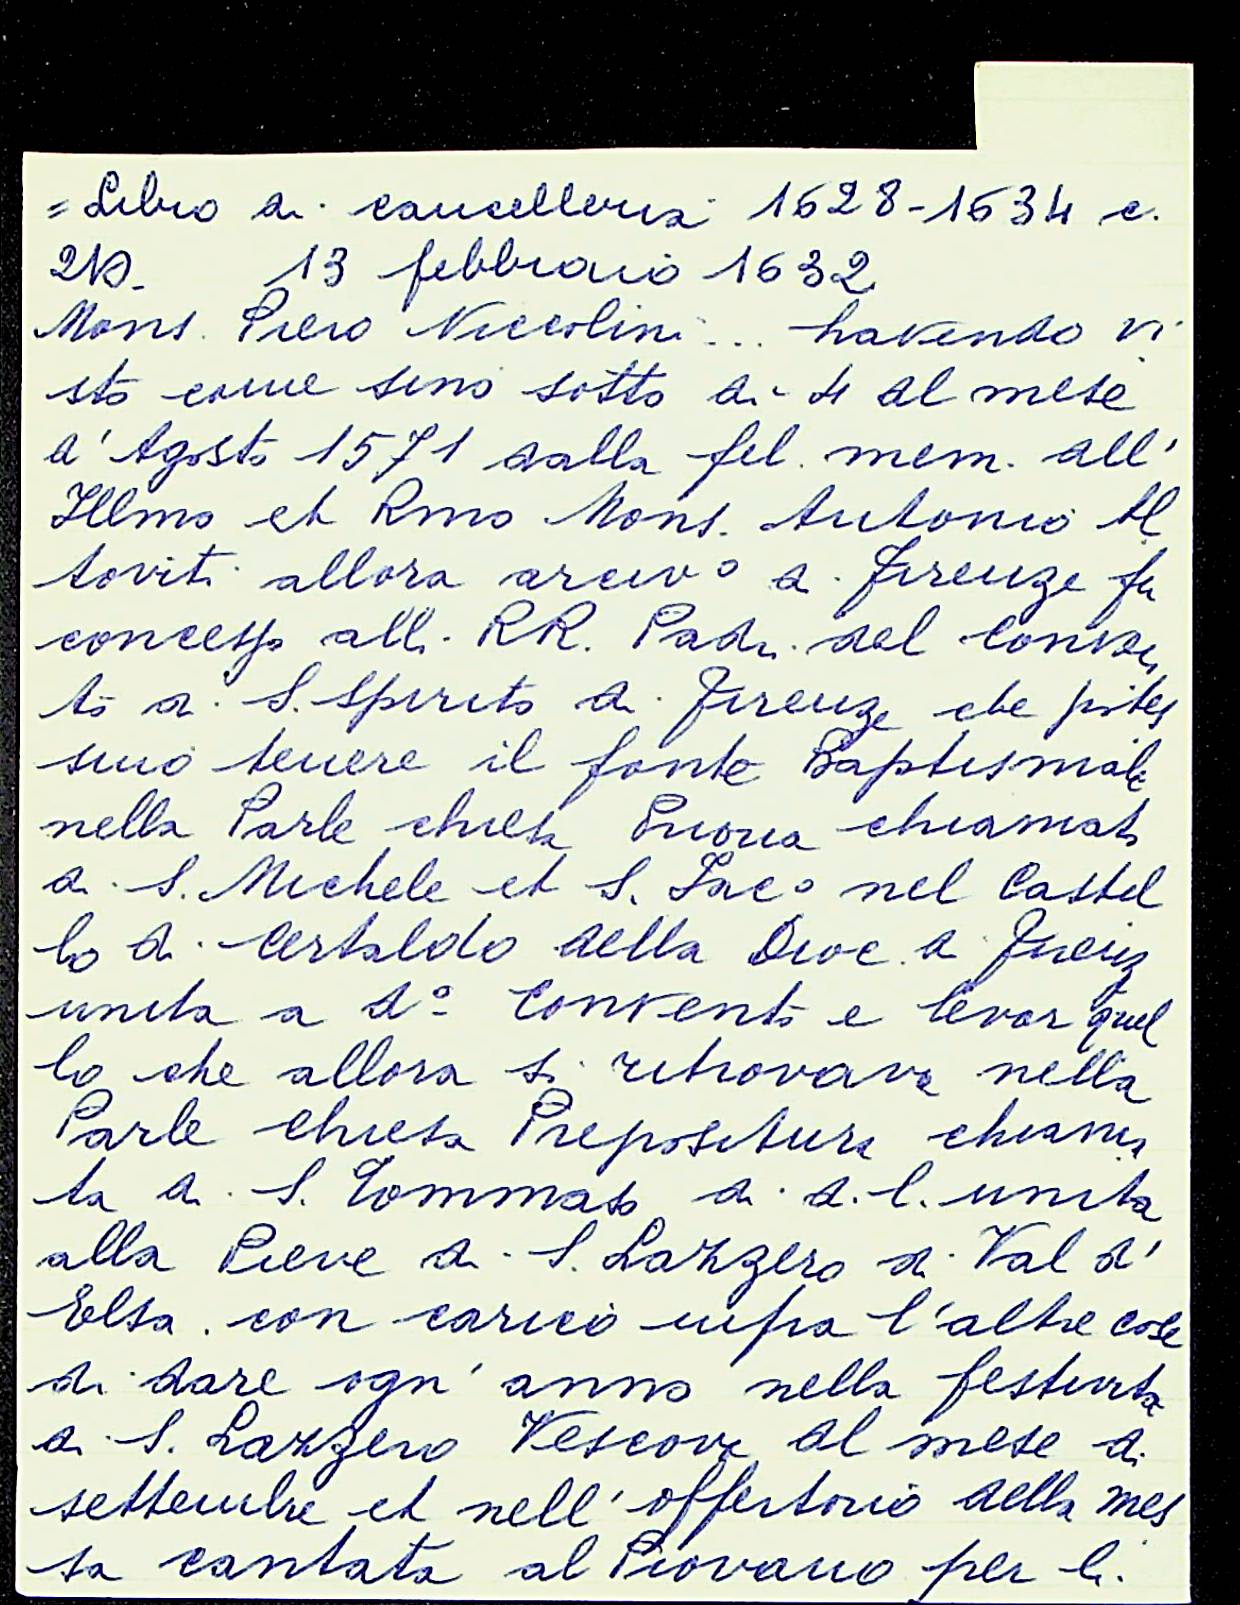 = Libro di cancelleria 1628-1634 c.
210. 13 febbraio 1632
Mons. Piero Niccolini... havendo vi
sto come sino sotto di 4 del mese
d'Agosto 1571 dalla fel. mem. dell'
Illmo et Rmo Mons. Antonio Al
toviti allora arcivo di Firenze fu
concesso alli RR. Padri del Conven
to di S. Spirito di Firenze che potes
sino tenere il fonte Baptismale
nella Parle chiesa Priora chiamata
di S. Michele et S. Iaco nel Castel
lo di Certaldo della Dioc. di Firenz
unita a do Convento e levar quel
lo che allora si ritrovava nella
Parle chiesa Prepositura chiama
ta di S. Tommaso di d. C. unita
alla Pieve di S. Lazzero di Val d'
Elsa. con carico infra l'altre cose
di dare ogn' anno nella festività
di S. Lazzero Vescovo del mese di
settembre et nell' offertorio della mes
sa cantata al Piovano per li